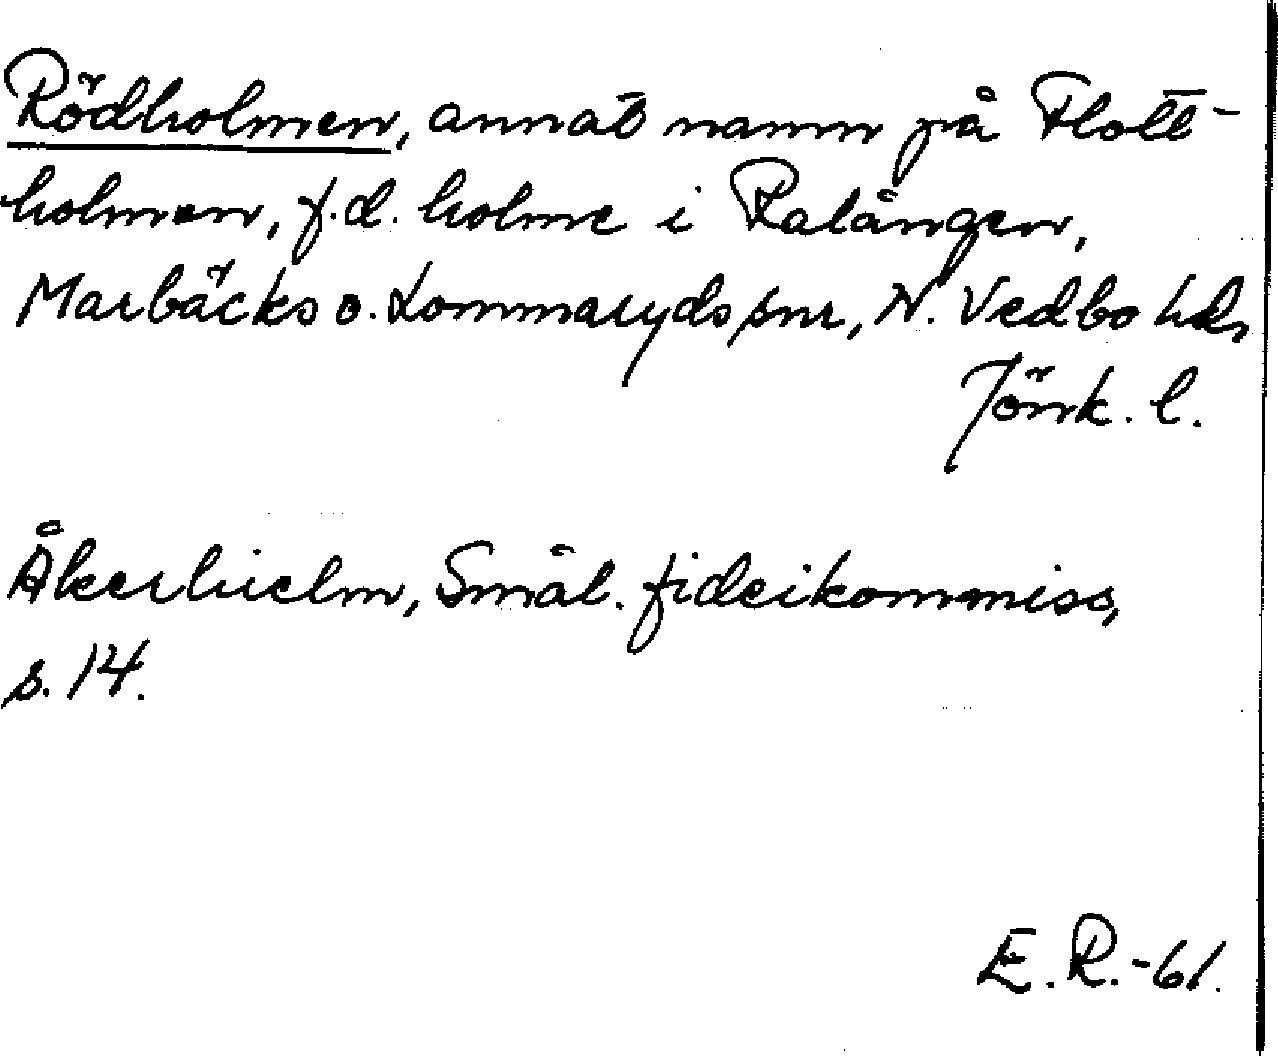 Rödholmen, annat namn på Flott-
holmen, f.d. holme i Ralången,
Marbäcks o. Lommaryds snr, N. Vedbo hd,
Jönk. l.
Åkerhielm, Smål. fideikommiss,
s. 14.
E. R. -61.